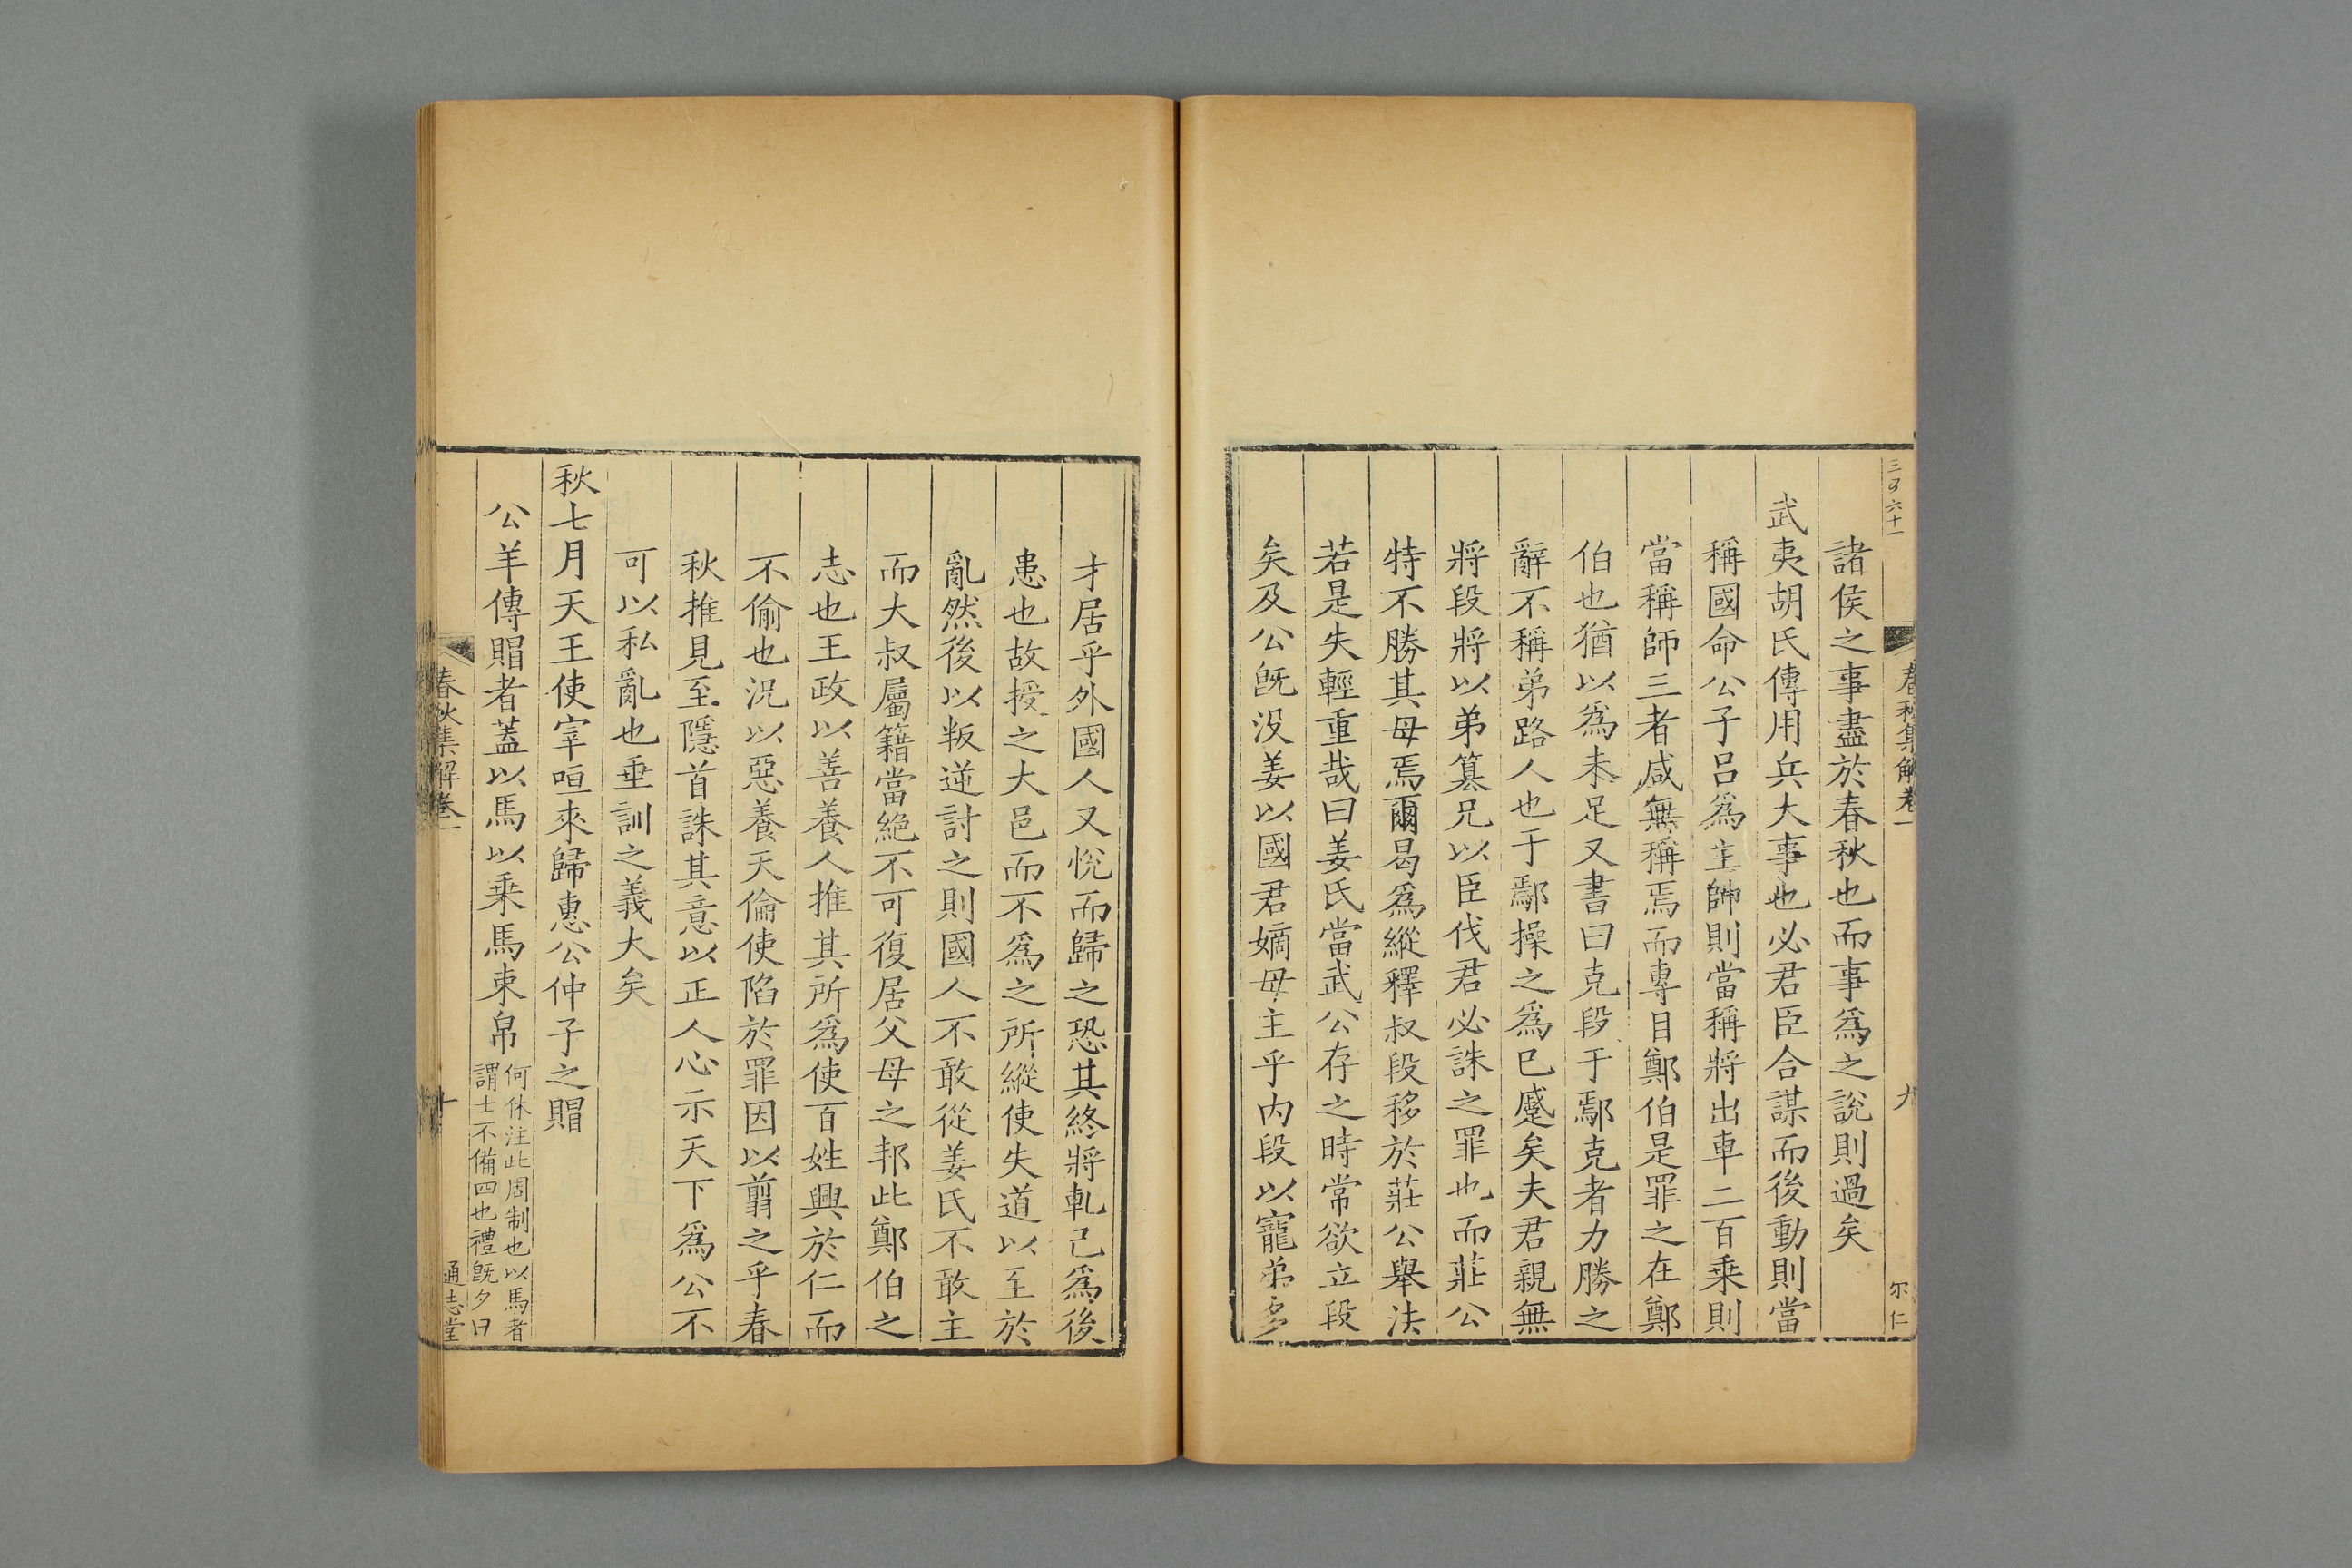 三百六十一
春秋集解卷一
九
尔仁
諸侯之事盡於春秋也而事爲之說則過矣
武夷胡氏傳用兵大事也必君臣合謀而後動則當
稱國命公子呂爲主帥則當稱將出車二百乗則
當稱師三者咸無稱焉而專目鄭伯是罪之在鄭
伯也猶以爲未足又書曰克段于鄢克者力勝之
辭不稱弟路人也于鄢操之爲已蹙矣夫君親無
將段將以弟簒兄以臣伐君必誅之罪也而莊公
特不勝其母焉爾曷爲縱釋叔段移於莊公舉法
若是失輕重哉曰姜氏當武公存之時常欲立段
矣及公旣没姜以國君嫡母主乎内段以寵弟多
才居乎外國人又悅而歸之恐其終將軋己爲後
患也故授之大邑而不爲之所縱使失道以至於
亂然後以叛逆討之則國人不敢從姜氏不敢主
而大叔屬籍當絶不可復居父母之邦此鄭伯之
志也王政以善養人推其所爲使百姓興於仁而
不偷也況以惡養天倫使陷於罪因以翦之乎春
秋推見至隱首誅其意以正人心示天下爲公不
可以私亂也垂訓之義大矣
秋七月天王使宰咺來歸惠公仲子之賵
公羊傳賵者蓋以馬以乗馬束帛
何休注此周制也以馬者
謂士不備四也禮旣夕曰
春秋集解卷一
十
通志堂